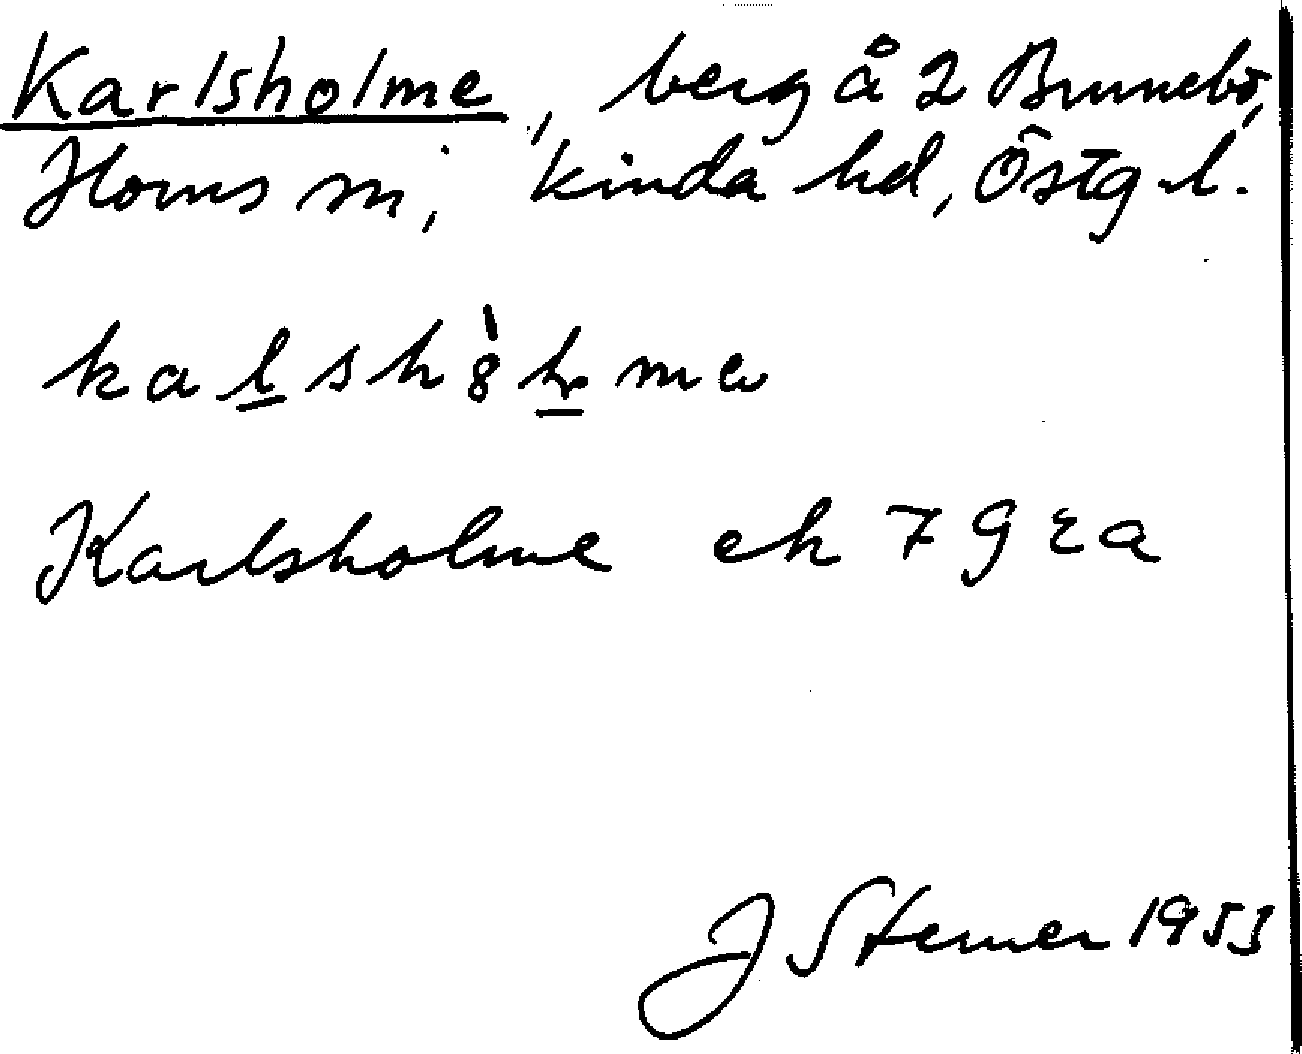 Karlsholme, berg å 2 Brunnebo,
Horns sn, Kinda hd, Östg. l.
Karlsholme ek 7 G 2 a
J Sterner 1953